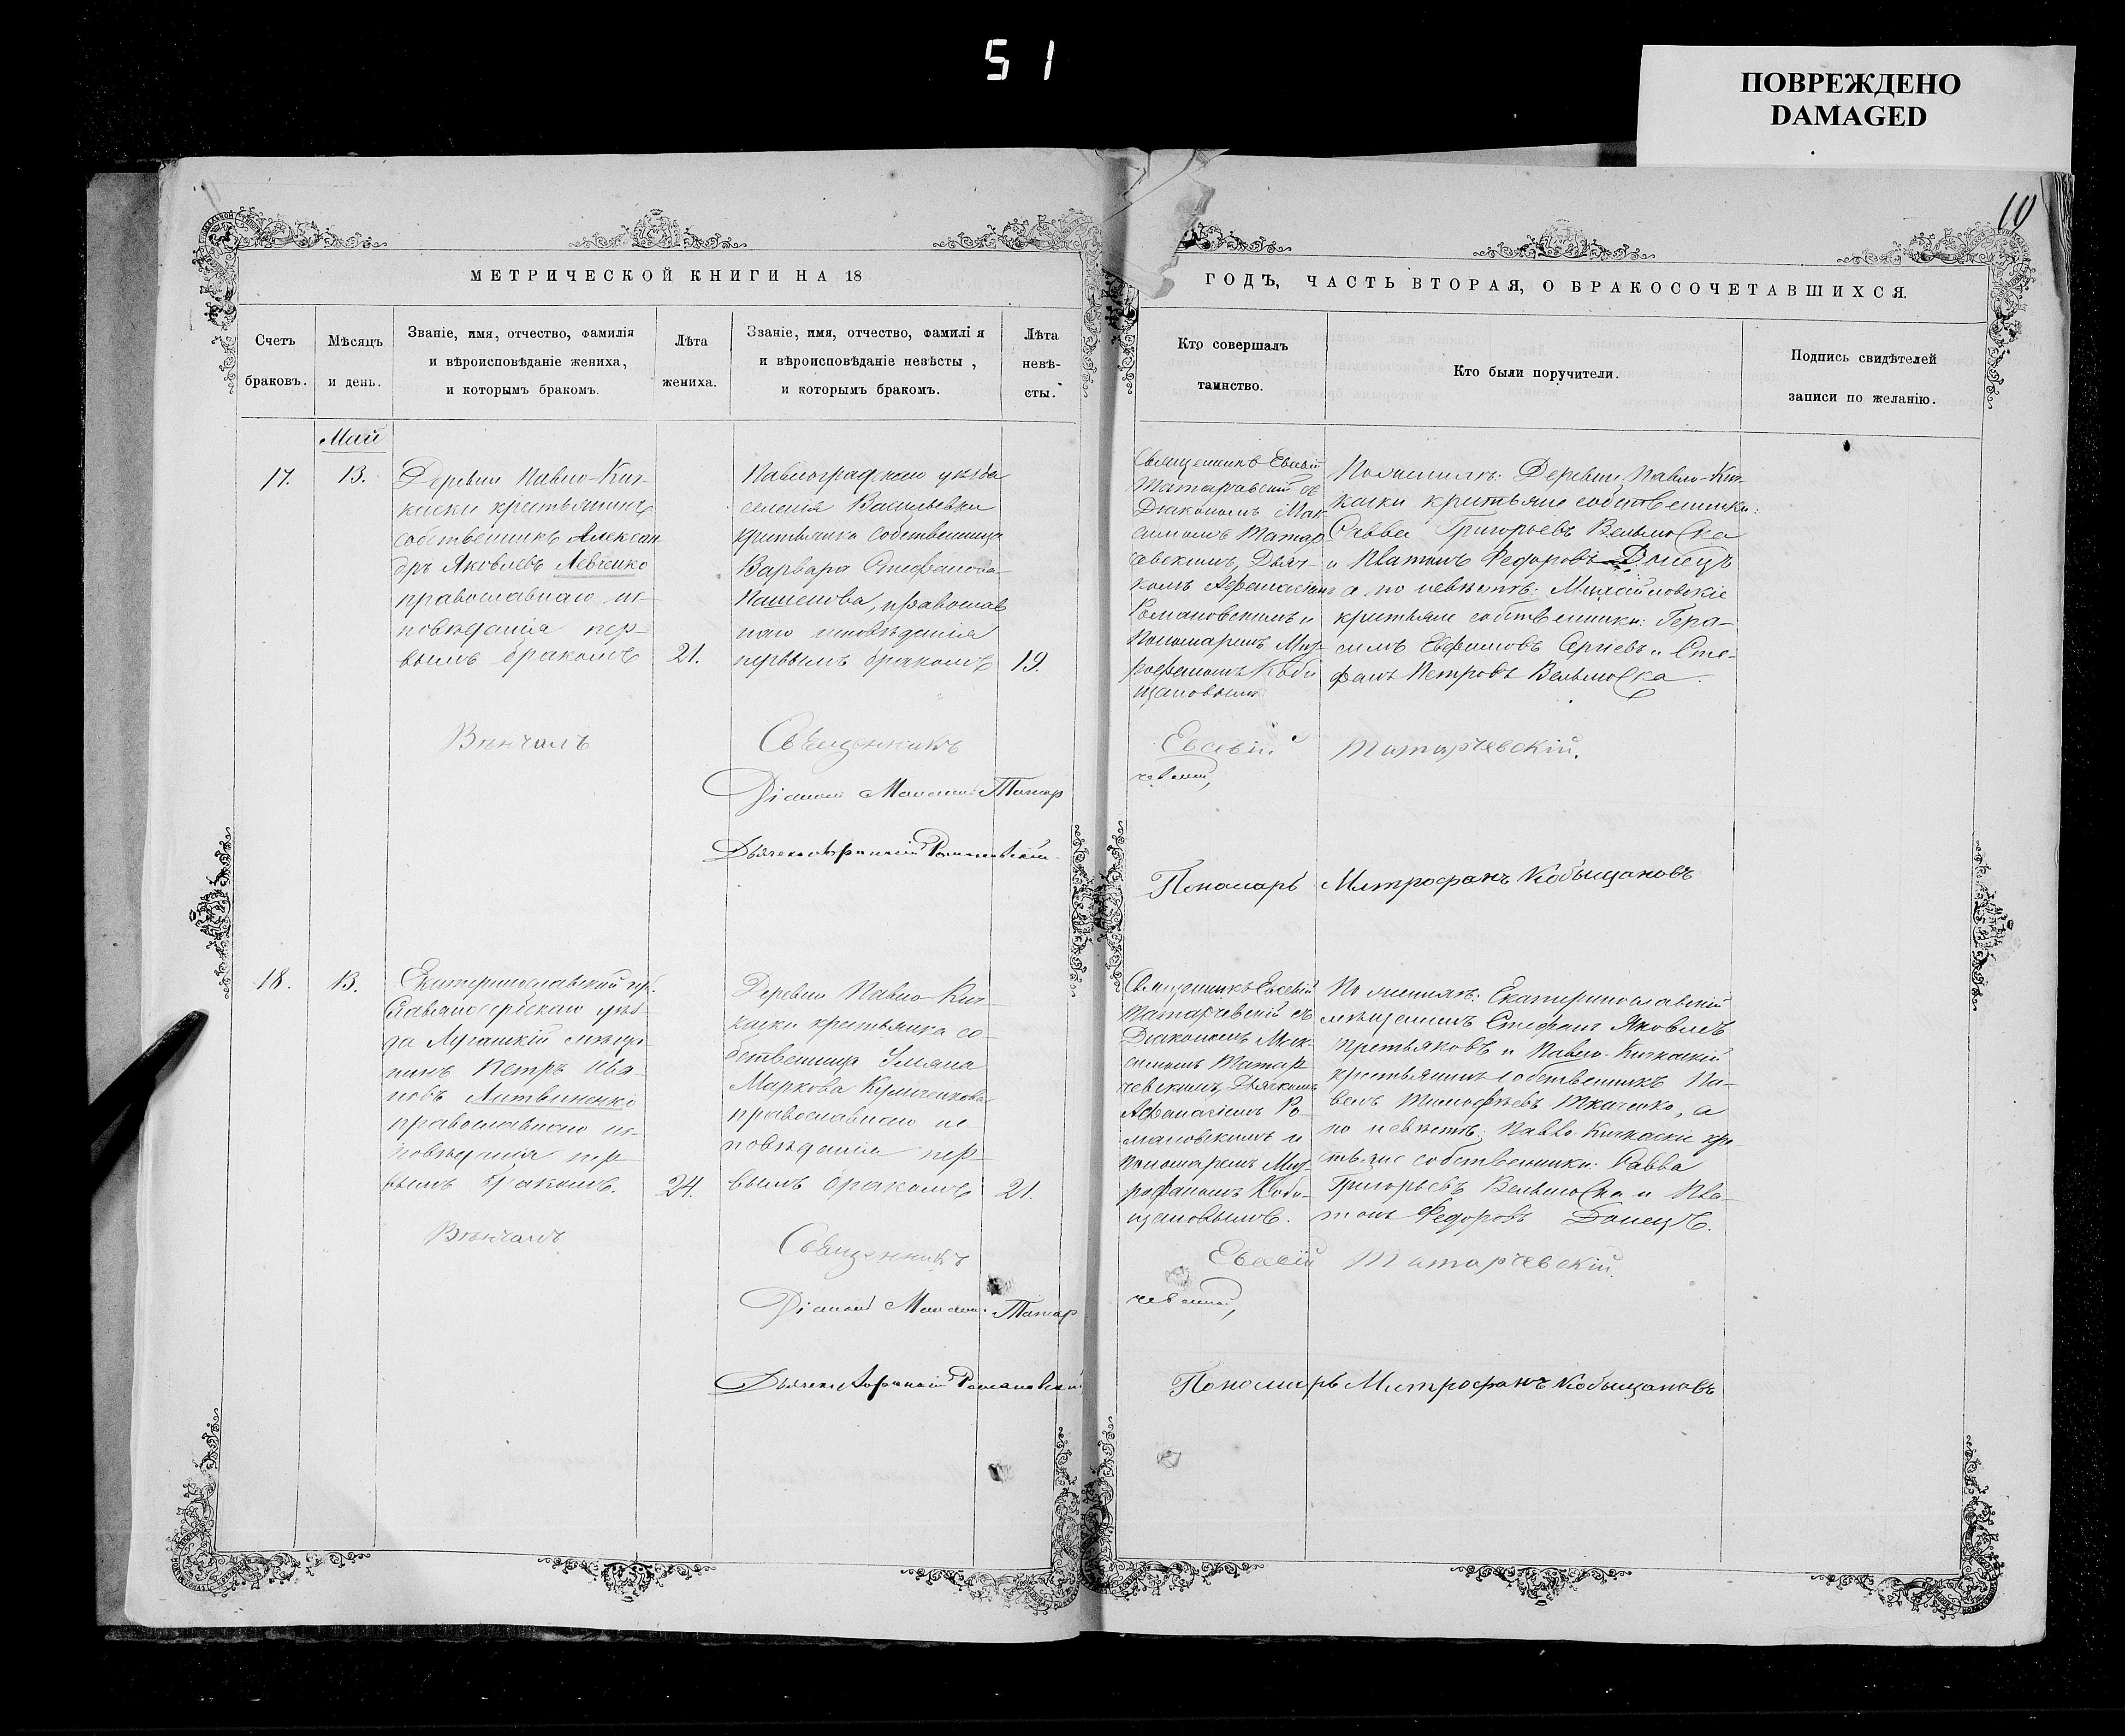 51
ПОВРЕЖДЕНО
DAMAGED
10
МЕТРИЧЕСКОЙ КНИГИ НА 18
Счетъ
браковъ.
Мѣсяцъ
и день.
Званіе, имя, отчество, фамилія
и вѣроисповѣданіе жениха,
и которымъ бракомъ.
Лѣта
жениха.
Званіе, имя, отчество, фамилія
и вѣроисповѣданіе невѣсты,
и которымъ бракомъ.
Лѣта
невѣ-
сты.
ГОДЪ, ЧАСТЬ ВТОРАЯ, О БРАКОСОЧЕТАВШИХСЯ.
Кто совершалъ
таинство.
Кто были поручители.
Подпись свидѣтелей
записи по желанію.
Май
17.
13.
Деревни Павло-Кич-
каски крестьянинъ
собственникъ Алексан
дръ Яковлевъ Левченко
православнаго ис-
повѣданія пер-
вымъ бракомъ
21.
Павлоградскаго уѣзда
селенія Васильевки
крестьянка собственница
Варвара Стефанова
Пашенова, православ
наго исповѣданія
первымъ бракомъ
19.
Священникъ Евсевій
Татарчевскій съ
Діакономъ Мак
симомъ Татар
чевскимъ, Дьяч-
комъ Афанасіемъ
Романовскимъ и
Пономаремъ Мит-
рофаномъ Кобы
щановымъ
По женихѣ: Деревни Павло-Кич-
каски крестьяне собственники:
Савва Григорьевъ Вельмоска
и Платонъ Федоровъ Донецъ
а по невѣстѣ: Михайловскіе
крестьяне собственники: Гера-
симъ Евфимовъ Сергіевъ и Сте-
фанъ Петровъ Вельмоска.
Вѣнчалъ
Священникъ
Евсевій
Татарчевскій.
Діаконъ Максимъ Татар
чевскій,
Дьячекъ Афанасій Романовскій.
Пономарь Митрофанъ Кобыщановъ
18.
13.
Екатеринославской гу.
Славяносербскаго уѣз-
да Луганскій мѣща
нинъ Петръ Ива-
новъ Литвиненко
православнаго ис-
повѣданія пер-
вымъ бракомъ.
24.
Деревни Павло-Кич-
каски крестьянка со-
бственница Уліяна
Маркова
православнаго ис
повѣданія пер-
вымъ бракомъ
21.
Священникъ Евсевій
Татарчевскій съ
Діакономъ Мак-
симомъ Татар
чевскимъ, Дьячкомъ
Афанасіемъ Ро-
мановскимъ и
Пономаремъ Мит-
рофаномъ Кобы-
щановымъ.
По женихѣ: Екатеринославскій
мѣщанинъ Стефанъ Яковлевъ
Третьяковъ и Павло-Кичкаскій
крестьянинъ собственникъ Па-
велъ Тимофѣевъ Ткаченко, а
по невѣстѣ: Павло-Кичкаскіе кре
стьяне собственники: Савва
Григорьевъ Вельмоска и Пла-
тонъ Федоровъ Донецъ.
Вѣнчалъ
Священникъ
Евсевій
Татарчевскій.
Діаконъ Максимъ Татар
чевскій,
Дьячекъ Афанасій Романовскій
Пономарь Митрофанъ Кобыщановъ